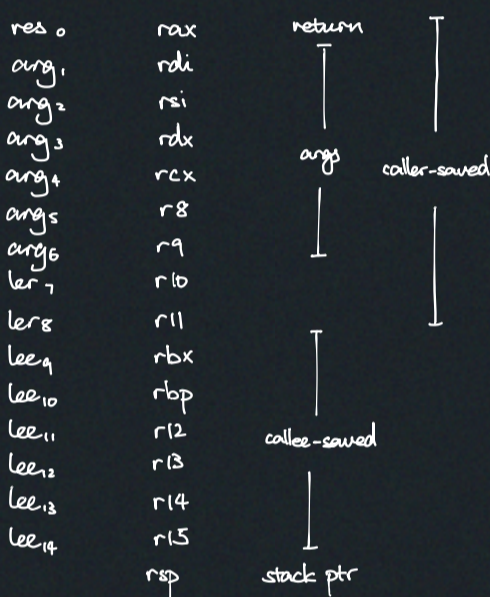 res 0 rax return
arg 1 rdi
arg 2 rsi
arg 3 rdx
arg 4 rcx args caller-saved
arg 5 r8
arg 6 r9
ler 7 r10
ler 8 r11
lee 9 rbx
lee 10 rbp
lee 11 r12 callee-saved
lee 12 r13
lee 13 r14
lee 14 r15
rsp stack ptr